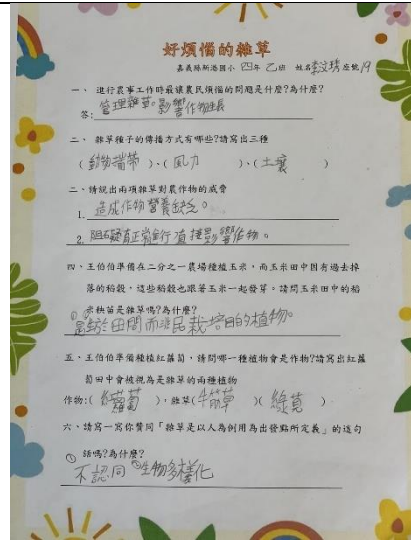 好煩惱的雜草
嘉義縣新港國小 四年 乙班 姓名 座號19
一、 進行農事工作時最讓農民煩惱的問題是什麼?為什麼?
答: 管理雜草。影響作物生長
二、 雜草種子的傳播方式有哪些?請寫出三種
(動物攜帶)、(風力)、(土壤)
二、請說出兩項雜草對農作物的威脅
1. 造成作物營養缺乏。
2. 阻礙真正當行直接影響作物。
四、王伯伯準備在二分之一農場種植玉米,而玉米田中因有過去掉
落的稻穀,這些稻穀也跟著玉米一起發芽。請問玉米田中的稻
禾秧苗是雜草嗎?為什麼?
① ②是
於田間而非 栽培目的植物。
五、王伯伯準備種植紅蘿蔔,請問哪一種植物會是作物?請寫出紅蘿
蔔田中會被視為是雜草的兩種植物
作物:(紅蘿蔔),雜草(牛筋草)(綠莧)
六、請寫一寫你贊同「雜草是以人為利用為出發點所定義」的這句
話嗎?為什麼?
①不認同 ②生物多樣化